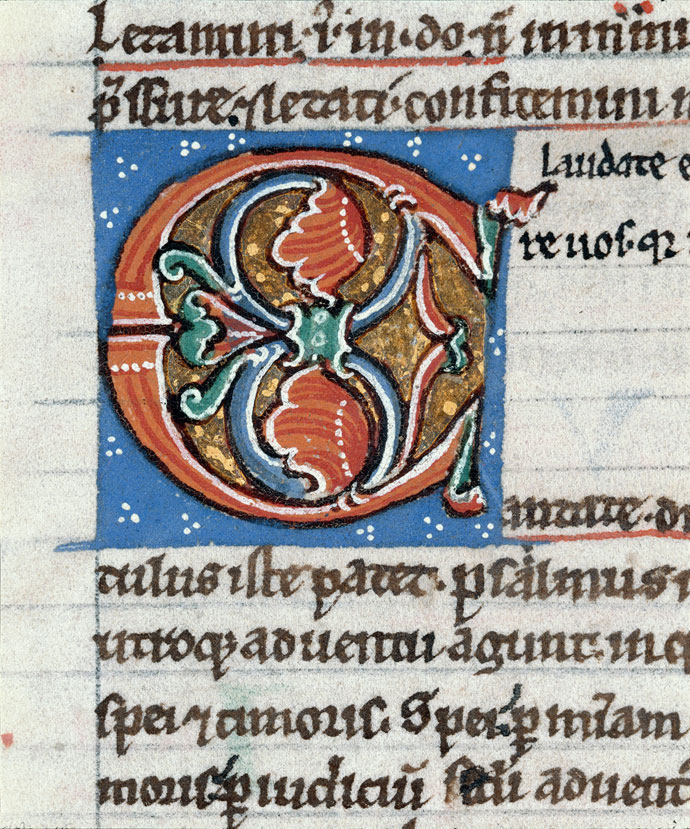 Letamini. ⁊ in. do. ñ in nimiu
p̃ssure. ⁊ letati. confitemini
laudate e
re uos. qꝫ
C antate. d
tulus iste patet. psalmus
utroqꝫ aduentu agunt. in
spei ⁊ timoris. Spei. ꝑ miam
moris. ꝑ iudiciū aduent